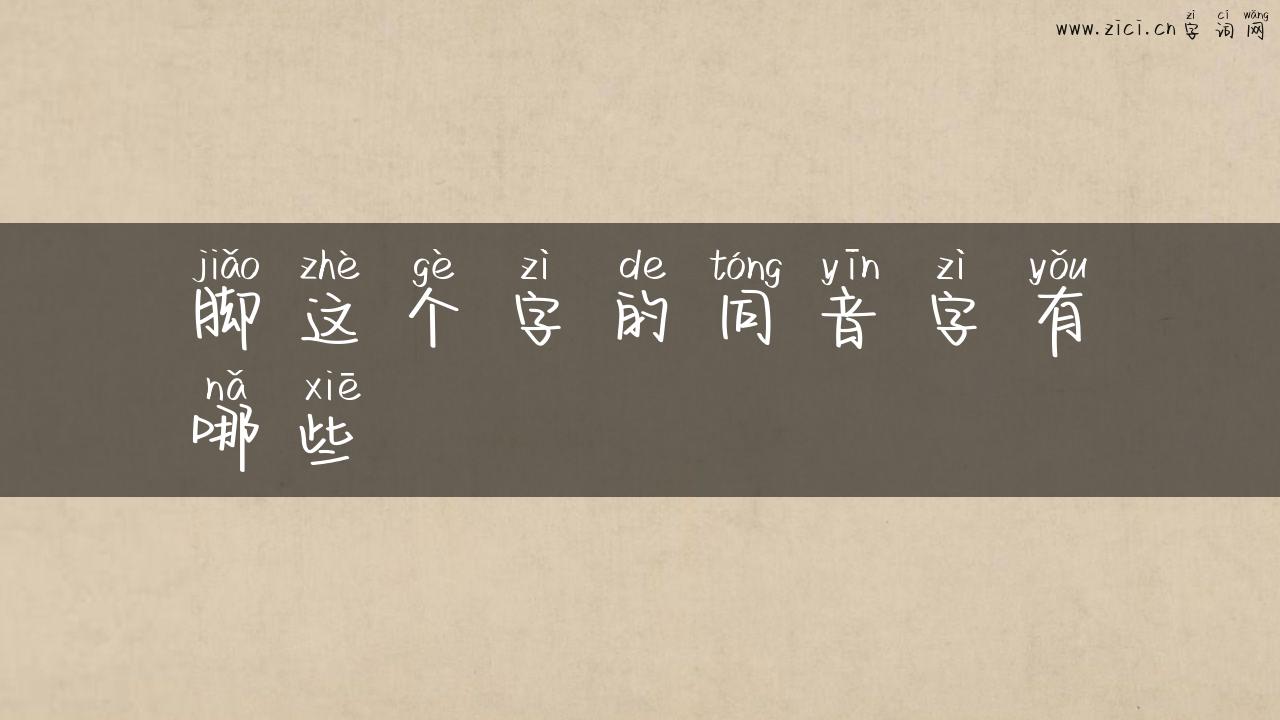 zì cí wǎng
www.zici.cn 字词网
jiǎo zhè gè zì de tóng yīn zì yǒu
脚这个字的同音字有
nǎ xiē
哪些